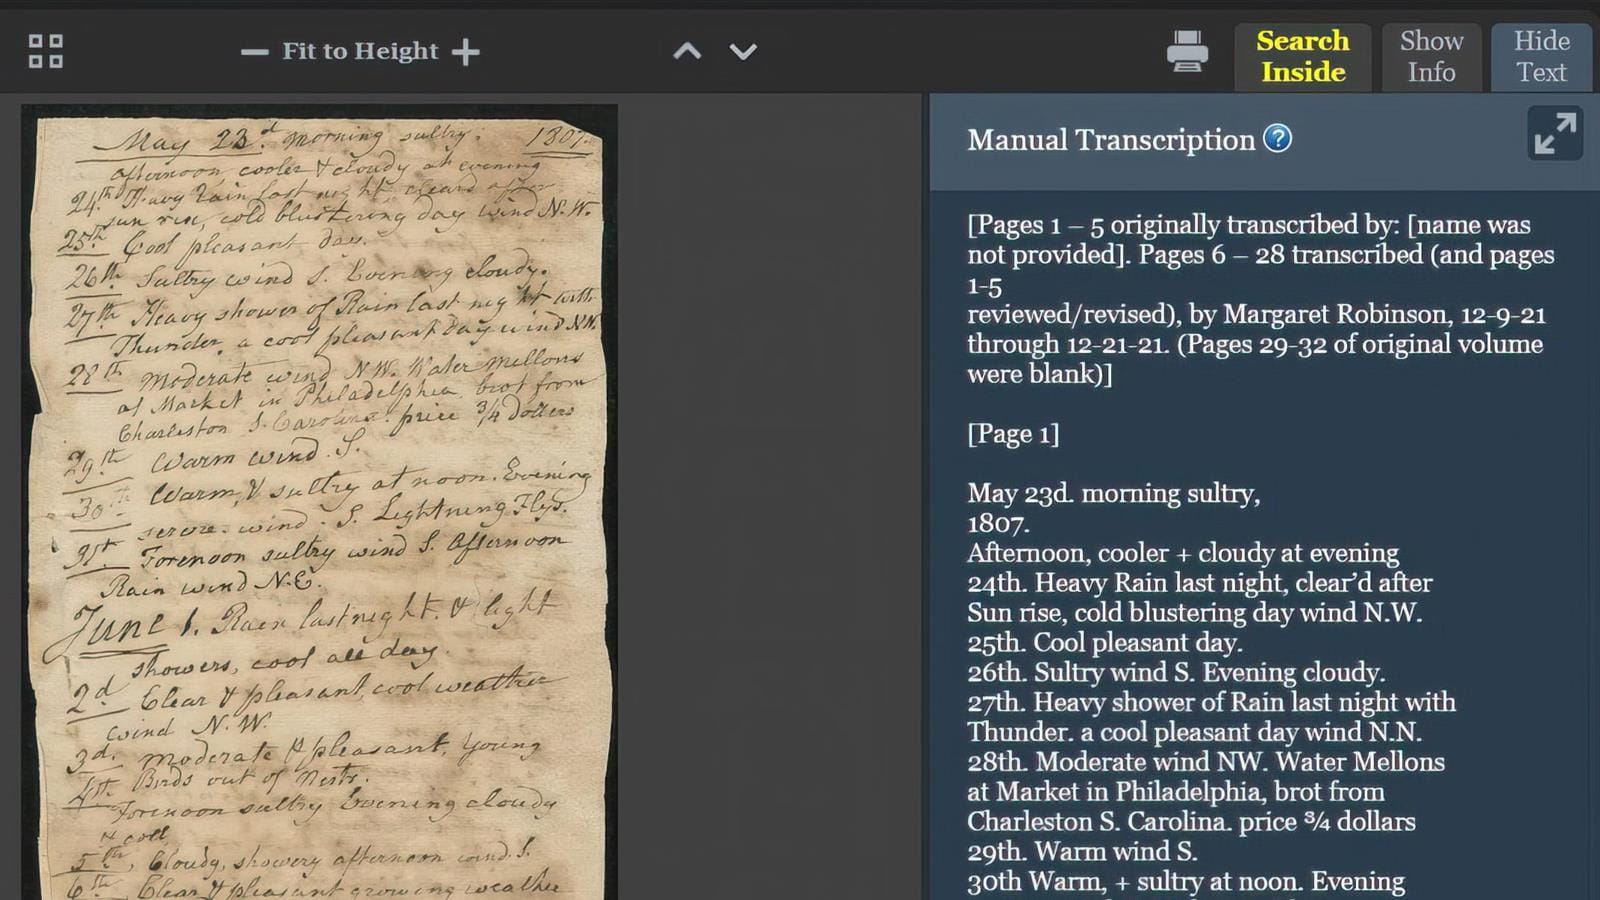 Fit to Height
Search
Inside
Show
Info
Hide
Text
May 23d. morning sultry; 1807.
afternoon, cooler & cloudy at evening
24th Heavy Rain last night, cleard after
sun rise, cold blustering day wind N.W.
25th Cool pleasant day.
26th Sultry wind S. Evening cloudy.
27th Heavy shower of Rain last night with
Thunder, a cool pleasant day wind NW.
28th Moderate wind N.W. Water Mellons
at Market in Philadelphia, brot from
Charleston S. Carolina. price 3/4 dollers
29th Warm wind S.
30th Warm, & sultry at noon. Evening
wind S. Lightning Flys.
31st. Forenoon sultry wind S. Afternoon
Rain wind N.E.
June 1. Rain last night. & light
showers, cool all day.
2d Clear & pleasant, cool weather
wind N.W.
3d. moderate & pleasant, Young
Birds out of Nests.
4th Forenoon sultry Evening cloudy
& cool
5th, Cloudy, showery afternoon wind S.
6th Clear & pleasant growing weather
Manual Transcription ?
[Pages 1 – 5 originally transcribed by: [name was
not provided]. Pages 6 – 28 transcribed (and pages
1-5
reviewed/revised), by Margaret Robinson, 12-9-21
through 12-21-21. (Pages 29-32 of original volume
were blank)]
[Page 1]
May 23d. morning sultry,
1807.
Afternoon, cooler + cloudy at evening
24th. Heavy Rain last night, clear’d after
Sun rise, cold blustering day wind N.W.
25th. Cool pleasant day.
26th. Sultry wind S. Evening cloudy.
27th. Heavy shower of Rain last night with
Thunder. a cool pleasant day wind N.N.
28th. Moderate wind NW. Water Mellons
at Market in Philadelphia, brot from
Charleston S. Carolina. price ¾ dollars
29th. Warm wind S.
30th Warm, + sultry at noon. Evening